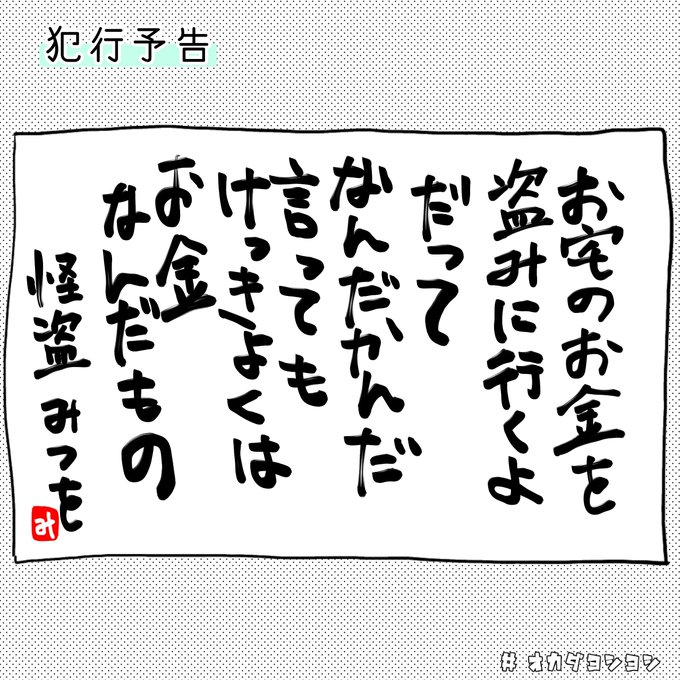 犯行予告
お宅のお金を
盗みに行くよ
だって
なんだかんだ
言っても
けっきょくは
お金
なんだもの
怪盗 みつを
み
# オカダヨンヨン